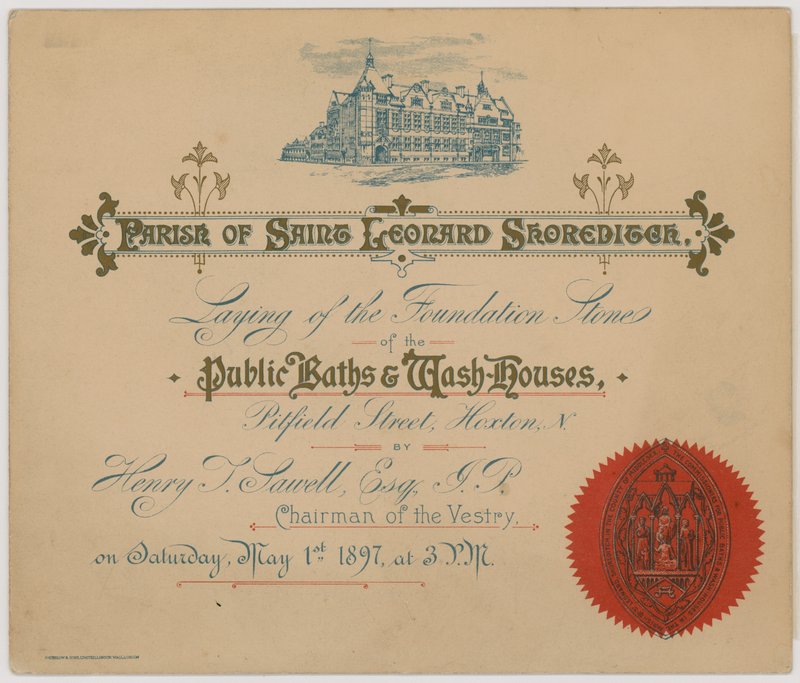 PARISH OF SAINT LEONARD SHOREDITCH.
Laying of the Foundation Stone
of the
Public Baths & Wash-Houses,
Pitfield Street, Hoxton, N.
BY
Henry T. Sawell, Esq, J. P.
Chairman of the Vestry,
on Saturday, May 1st 1897, at 3 P.M.